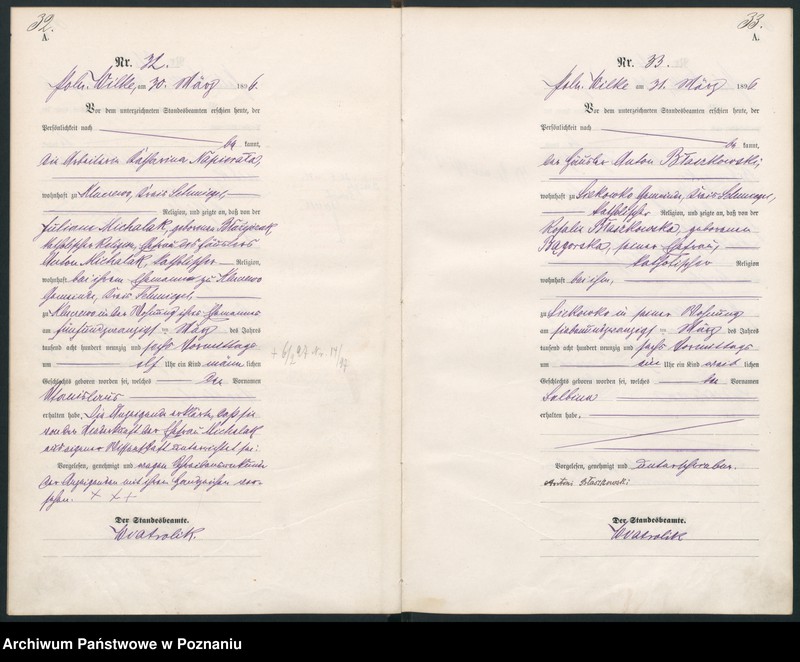 32.
A.
Nr. 32.
Poln. Wilke, am 30. März 1896.
Vor dem unterzeichneten Standesbeamten erschien heute, der
Persönlichkeit nach
be kannt,
die Arbeiterin Katharina Napierała,
wohnhaft zu Kreis Schmiegel,
Religion, und zeigte an, daß von der
Juliana Michalak, geborenen
katholischer Religion, Ehefrau des Häuslers
Anton Michalak, katholischer Religion,
wohnhaft bei ihrem Ehemanne zu
Gemeinde, Kreis Schmiegel,
zu in der Wohnung ihres Ehemannes
am fünfundzwanzigsten März des Jahres
tausend acht hundert neunzig und sechs Vormittags
um elf Uhr ein Kind männ lichen
Geschlechts geboren worden sei, welches den Vornamen
Stanislaus
erhalten habe. Die Anzeigende erklärte, daß sie
von der Niederkunft der Ehefrau Michalak
aus eigener Wissenschaft unterrichtet sei.
Vorgelesen, genehmigt und wegen Schreibensunkunde
der Anzeigenden mit ihren Handzeichen ver-
sehen. + + +
Der Standesbeamte.
Kwatrolik.
33.
A.
Nr. 33.
Poln. Wilke am 31. März 1896
Vor dem unterzeichneten Standesbeamten erschien heute, der
Persönlichkeit nach
be kannt,
der Häusler Anton Błaszkowski,
wohnhaft zu Sierkowko Gemeinde, Kreis Schmiegel,
katholischer Religion, und zeigte an, daß von der
Rosalia Błaszkowska, geborenen
seiner Ehefrau,
katholischer Religion
wohnhaft bei ihm,
zu Sierkowko in seiner Wohnung
am siebenundzwanzigsten März des Jahres
tausend acht hundert neunzig und sechs Vormittags
um ein Uhr ein Kind weib lichen
Geschlechts geboren worden sei, welches den Vornamen
Balbina
erhalten habe.
Vorgelesen, genehmigt und unterschrieben.
Antoni Błaszkowski
Der Standesbeamte.
Kwatrolik
Archiwum Państwowe w Poznaniu